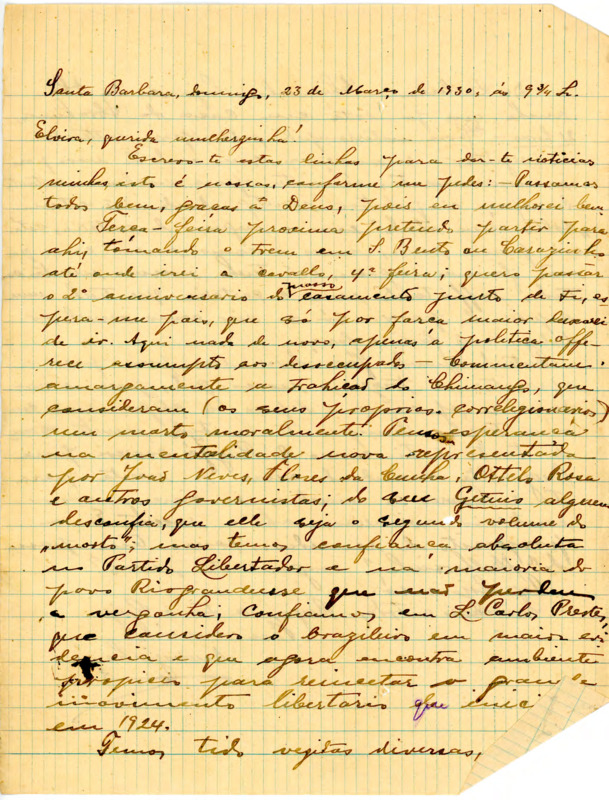 Santa Barbara, domingo, 23 de Março de 1930, ás 9 3/4 h.
Elvira, querida mulherzinha!
Escrevo-te estas linhas para dar-te noticias
minhas, isto é nossas, conforme me pedes: - Passamos
todos bem, graças á Deus, pois eu melhorei bem.
Terça-feira proxima pretendo partir para
ahi, tomando o trem em S. Bento ou Carazinho
até onde irei a cavallo, 4ª feira; quero passar
o 2º anniversario do nosso casamento junto de Ti, es-
pera-me pois, que só por força maior deixarei
de ir. Aqui nada de novo, apenas a politica offe-
rece assumpto aos desoccupados - Commentam
amargamente a trahição do Chimango, que
consideram (os seus proprios correligionarios)
um morto moralmente. Temos esperança
na mentalidade nova representada
por João Neves, Flores da Cunha, Ottelo Rosa
e outros governistas; do seu Getulio alguem
desconfia, que elle seja o segundo volume do
"morto"; mas temos confiança absoluta
no Partido Libertador e na maioria do
povo Riograndense que não perdem
a vergonha; confiamos em L. Carlos Prestes,
que considero o brazileiro em maior evi-
dencia e que agora encontra ambiente
propicio para reincetar o grande
movimento libertario que
em 1924.
Temos tido vezitas diversas,